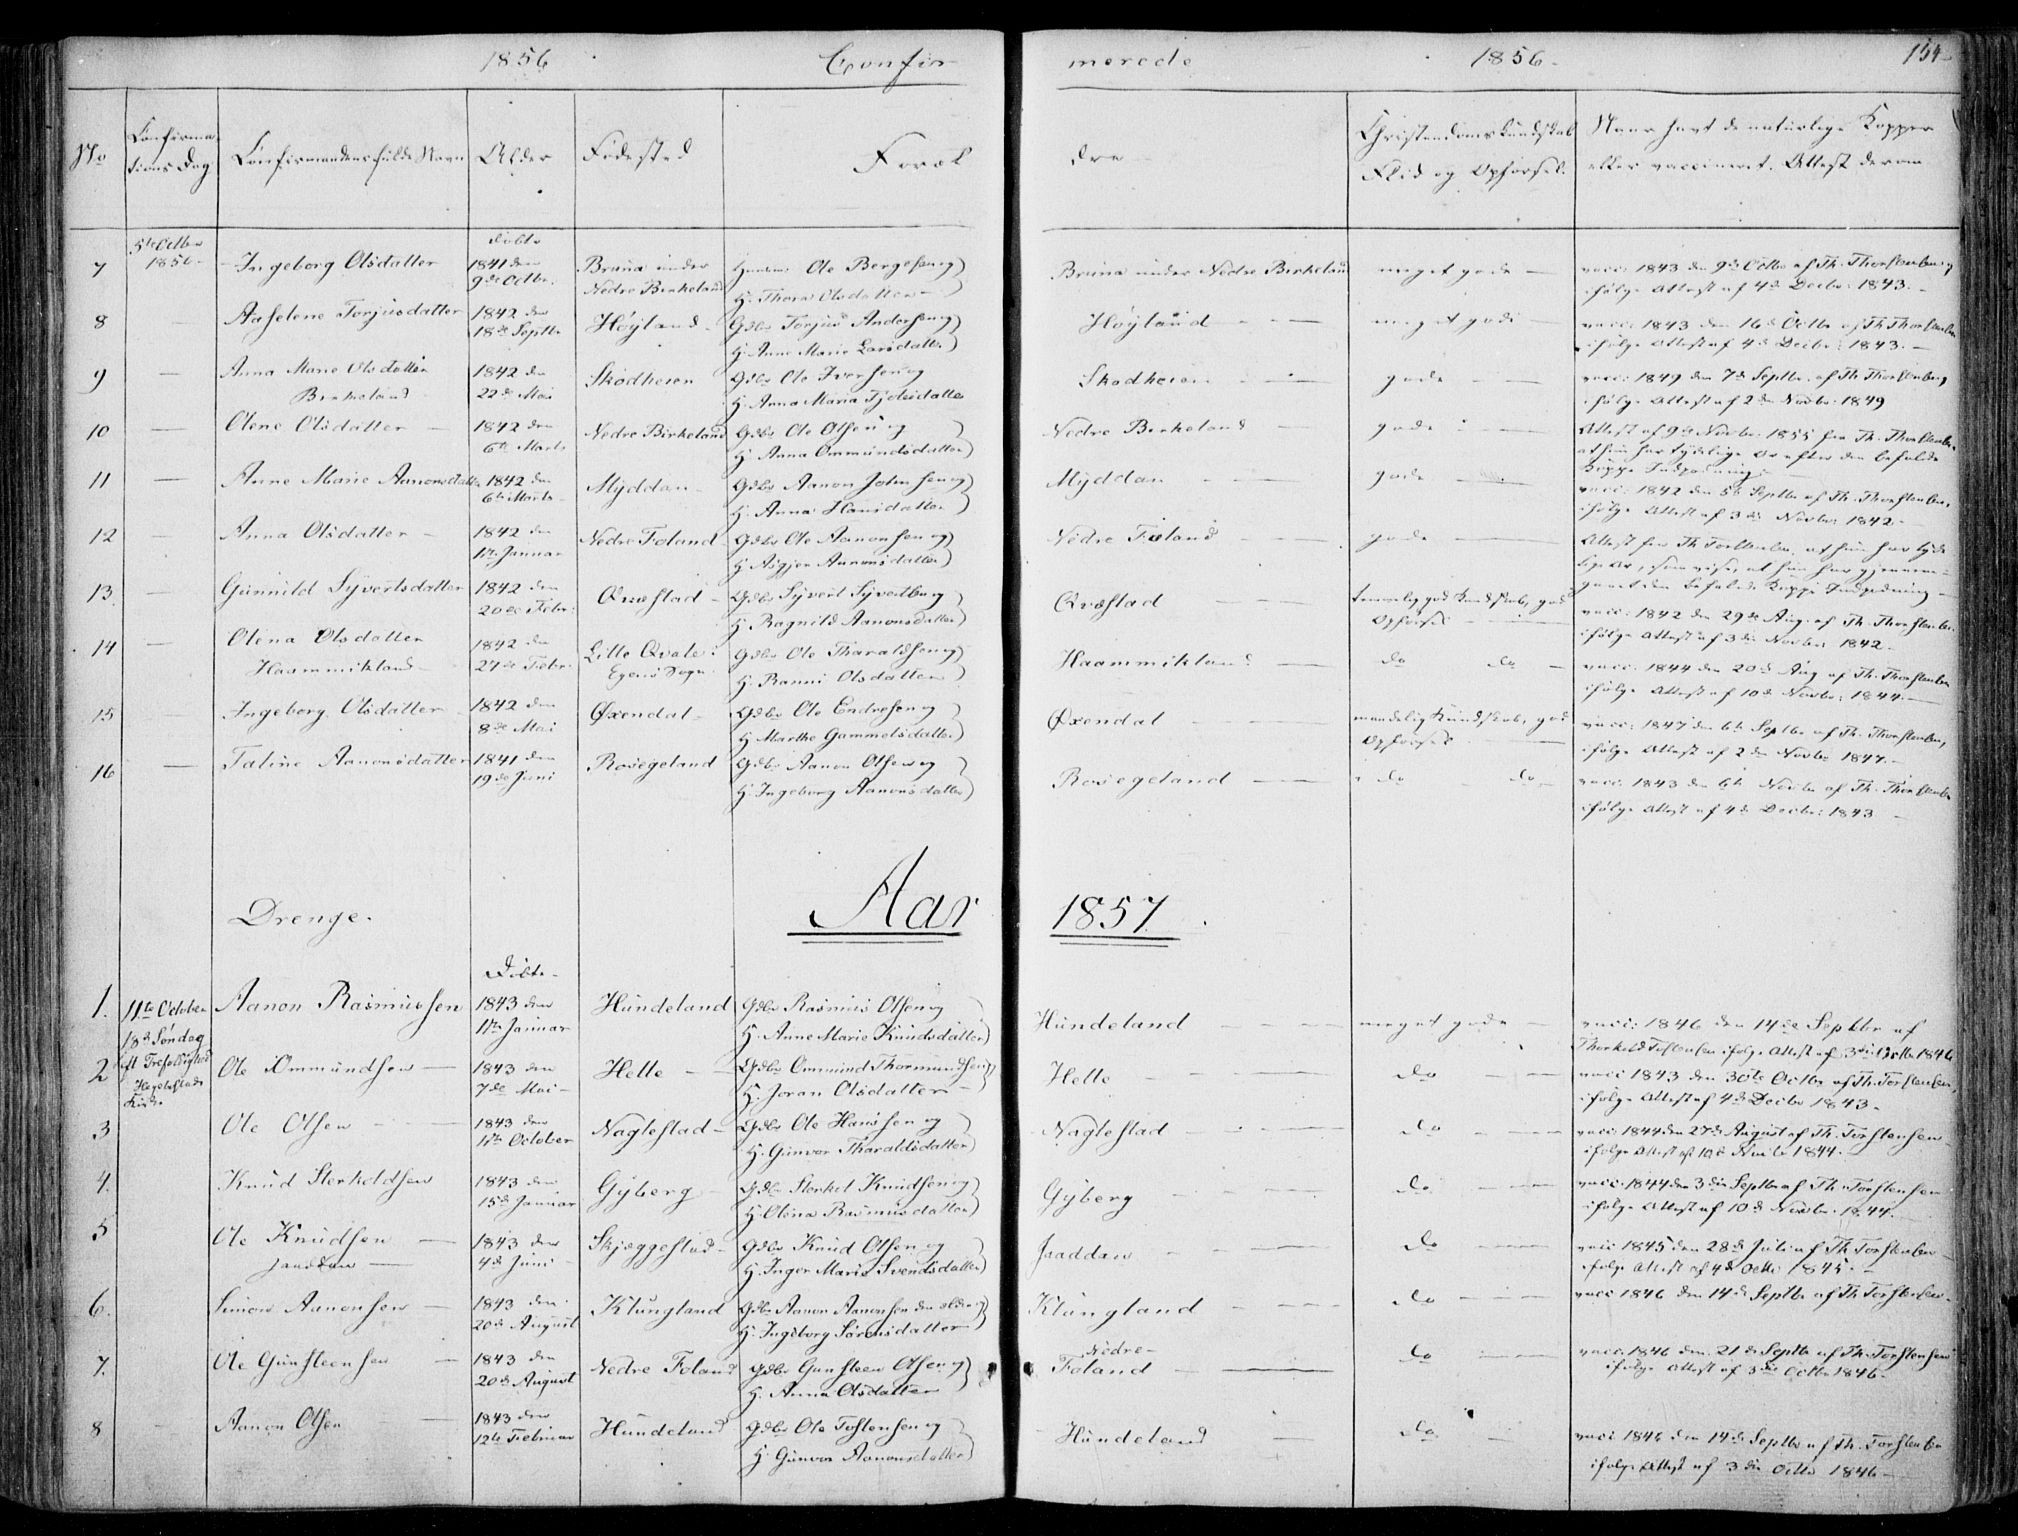 1856 Confir- merede 1856. 154
No
Confirma-
tions Dag
Confirmandens fulde Navn
Alder
Fødested
Foræl dre
Christendomskundskab
Flid og Opførsel.
Naar havt de naturlige Kopper
eller vaccineret. Attest derom
5te Octbr
1856
døbte
7 Ingeborg Olsdatter 1841 den Bruna under Ole Bergesen og Bruna under Nedre Birkeland meget gode vacc: 1843 den 9de Octbr af Th. Thorstensen
9de Octbr. Nedre Birkeland H. Thora Olsdatter ifølge Attest af 4de Decbr: 1843.
8 Aaselene Torjusdatter 1842 den Høyland Gdbr Torjus Andersen og Høyland meget gode vacc: 1843 den 16de Octbr af Th. Thorstensen
18de Septbr H. Anne Marie Larsdatter ifølge Attest af 4de Decbr: 1843.
9 Anna Marie Olsdatter 1842 den Skodheien Gdbr Ole Iversen og Skodheien gode vacc: 1849 den 7de Septbr. af Th. Thorstensen
Birkeland 22de Mai H. Anna Maria Tjølsdatter ifølge Attest af 2den Novbr: 1849
10 Olene Olsdatter 1842 den Nedre Birkeland Gdbr Ole Olsen og Nedre Birkeland gode Attest af 9de Novbr. 1855 fra Th. Thorstensen
6te Marts H. Anna Ommundsdatter at hun har tydelige Ar efter den befalede
Koppe Indpodning
11 Anne Marie Aanonsdatter 1842 den Myddan Gdbr Aanon Johnsen og Myddan gode vacc: 1842 den 5te Septbr af Th. Thorstensen,
6te Marts H. Anna Hansdatter ifølge Attest af 3die Novbr: 1842.
12 Anna Olsdatter 1842 den Nedre Foland Gdbr Ole Aanonsen og Nedre Foland gode Attest fra Th Torstensen, at hun har tyde
1te Januar H. Asgjer Aanonsdatter lige Ar, som vise, at hun har gjennem-
gaaet den befalede Koppe Indpodning
13. Gunnild Syvertsdatter 1842 den Qvæstad Gdbr Syvert Syvertsen og Qvæstad temmelig god Kundskab, god vacc: 1842 den 29de Aug. af Th. Thorstensen
20de Febr: H. Ragnild Aanonsdatter Opførsel ifølge Attest af 3die Novbr 1842.
14 Olena Olsdatter 1842 den Lille Qvale i Gdbr Ole Tharaldsen og Haammikland do do vacc: 1844 den 20de Aug af Th. Thorstensen
Haammikland 27de Febr: Egers Sogn H. Ranni Olsdatter ifølge Attest af 10de Novbr: 1844.
15 Ingeborg Olsdatter 1842 den Øxendal Gdbr Ole Endresen og Øxendal maadelig Kundskab, god vacc: 1847 den 6te Septbr af Th. Thorstensen,
8de Mai H Marthe Gammelsdatter Opførsel ifølge Attest af 2den Novbr 1847.
16 Taline Aanonsdatter 1841 den Rosegeland Gdbr Aanon Olsen og Rosegeland do do vacc: 1843 den 6te Novbr af Th. Thorstensen
19de Juni H. Ingeborg Aanonsdatter ifølge Attest af 4de Decbr: 1843
Aar 1857.
Drenge.
Døbte
1. 11te October Aanon Rasmussen 1843 den Hundeland Gdbr Rasmus Olsen og Hundeland meget gode vacc: 1846 den 14de Septbr af
18de Søndag 11te Januar H. Anne Marie Knudsdatter Thorkeld Tostensen ifølge Attest af 3die Octbr 1846
2 eft Trefoldighed Ole Ommundsen 1843 den Helle Gdbr Ommund Thormundsen og Helle do vacc 1843 den 30te Octbr af Th. Torstensen,
Hegebostads 7de Mai H. Joran Olsdatter ifølge Attest af 4de Decbr 1843.
Kirke
3 Ole Olsen 1843 den Naglestad Gdbr Ole Hansen og Naglestad do vacc: 1844 den 27de August af Th. Torstensen
11te October H. Gunvor Tharaldsdatter ifølge Attest af 10de Novbr 1844.
4. Knud Sterkeldsen 1843 den Gyberg Gdbr Sterkel Knudsen og Gyberg do vacc: 1844 den 3die Septbr af Th. Torstensen
15de Januar H. Olena Rasmusdatter ifølge Attest af 10de Novbr. 1844.
5 Ole Knudsen 1843 den Skjeggestad Gdbr Knud Olsen og Jaaddan do vacc 1845 den 28de Juli af Th Torstensen
Jaaddan 4de Juni H. Inger Marie Svendsdatter ifølge Attest af 4de Octbr 1845.
6. Simon Aanonsen 1843 den Klungland Gdbr Aanon Aanonsen den ældre og Klungland do vacc 1846 den 14de Septbr af Th. Torstensen.
20de August H. Ingeborg Sørensdatter
7. Ole Gunsteensen 1843 den Nedre Foland Gdbr Gunsteen Olsen og Nedre Foland do vacc: 1846 den 21de Septbr af Th. Torstensen
20de August H. Anna Olsdatter ifølge Attest af 3die Octbr 1846.
8 Aanon Olsen 1843 den Hundeland Gdbr Ole Tostensen og Hundeland do vacc 1846 den 14de Septbr af Th. Torstensen
12te Februar H Gunvor Aanonsdatter ifølge Attest af 3die Octbr 1846